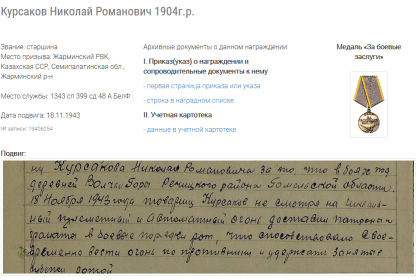 Курсаков Николай Романович 1904г.р.
Звание: старшина
Место призыва: Жарминский РВК,
Казахская ССР, Семипалатинская обл.,
Жарминский р-н
Место службы: 1343 сп 399 сд 48 А БелФ
Дата подвига: 18.11.1943
№ записи: 19406254
Архивные документы о данном награждении:
I. Приказ(указ) о награждении и
сопроводительные документы к нему
- первая страница приказа или указа
- строка в наградном списке
II. Учетная картотека
- данные в учетной картотеке
Медаль «За боевые
заслуги»
Подвиг:
Курсакова Николая Романовича за то, что в боях под
деревней Волчьи Горы Речицкого района Гомельской области.
18 Ноября 1943 года товарищ Курсаков не смотря на
ный пулеметный и автоматный огонь доставил патроны и
гранаты в боевые порядки рот, что способствовало свое-
временно вести огонь по противнику и удержать занятые
рубежи ротой.